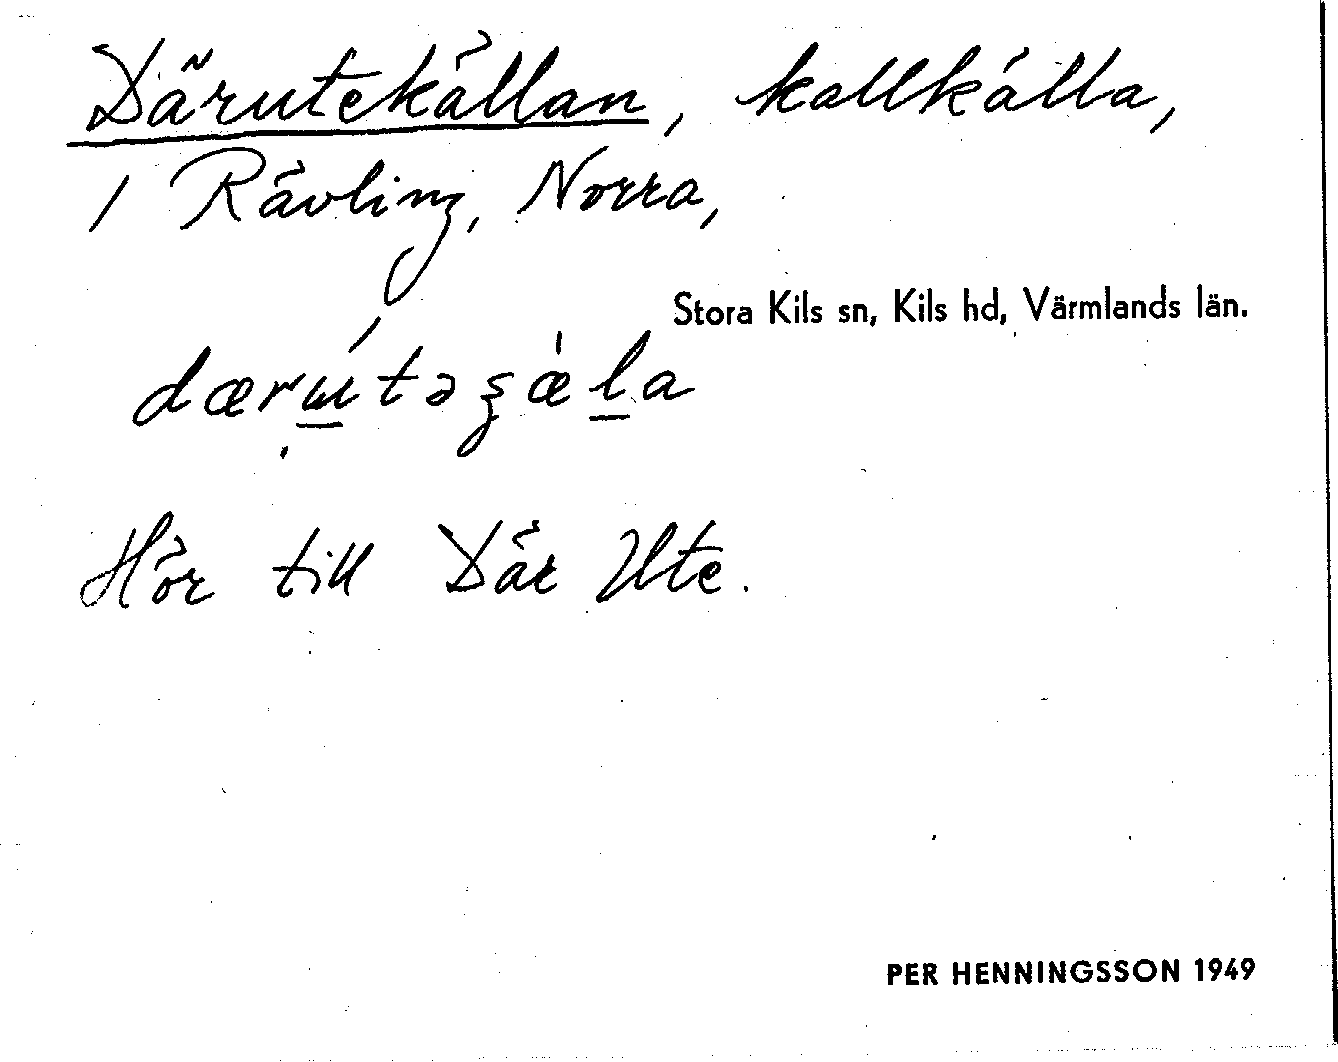 Därutekällan, kallkälla,
1 Rävling, Norra,
Stora Kils sn, Kils hd, Värmlands län.
Hör till Där Ute.
PER HENNINGSSON 1949